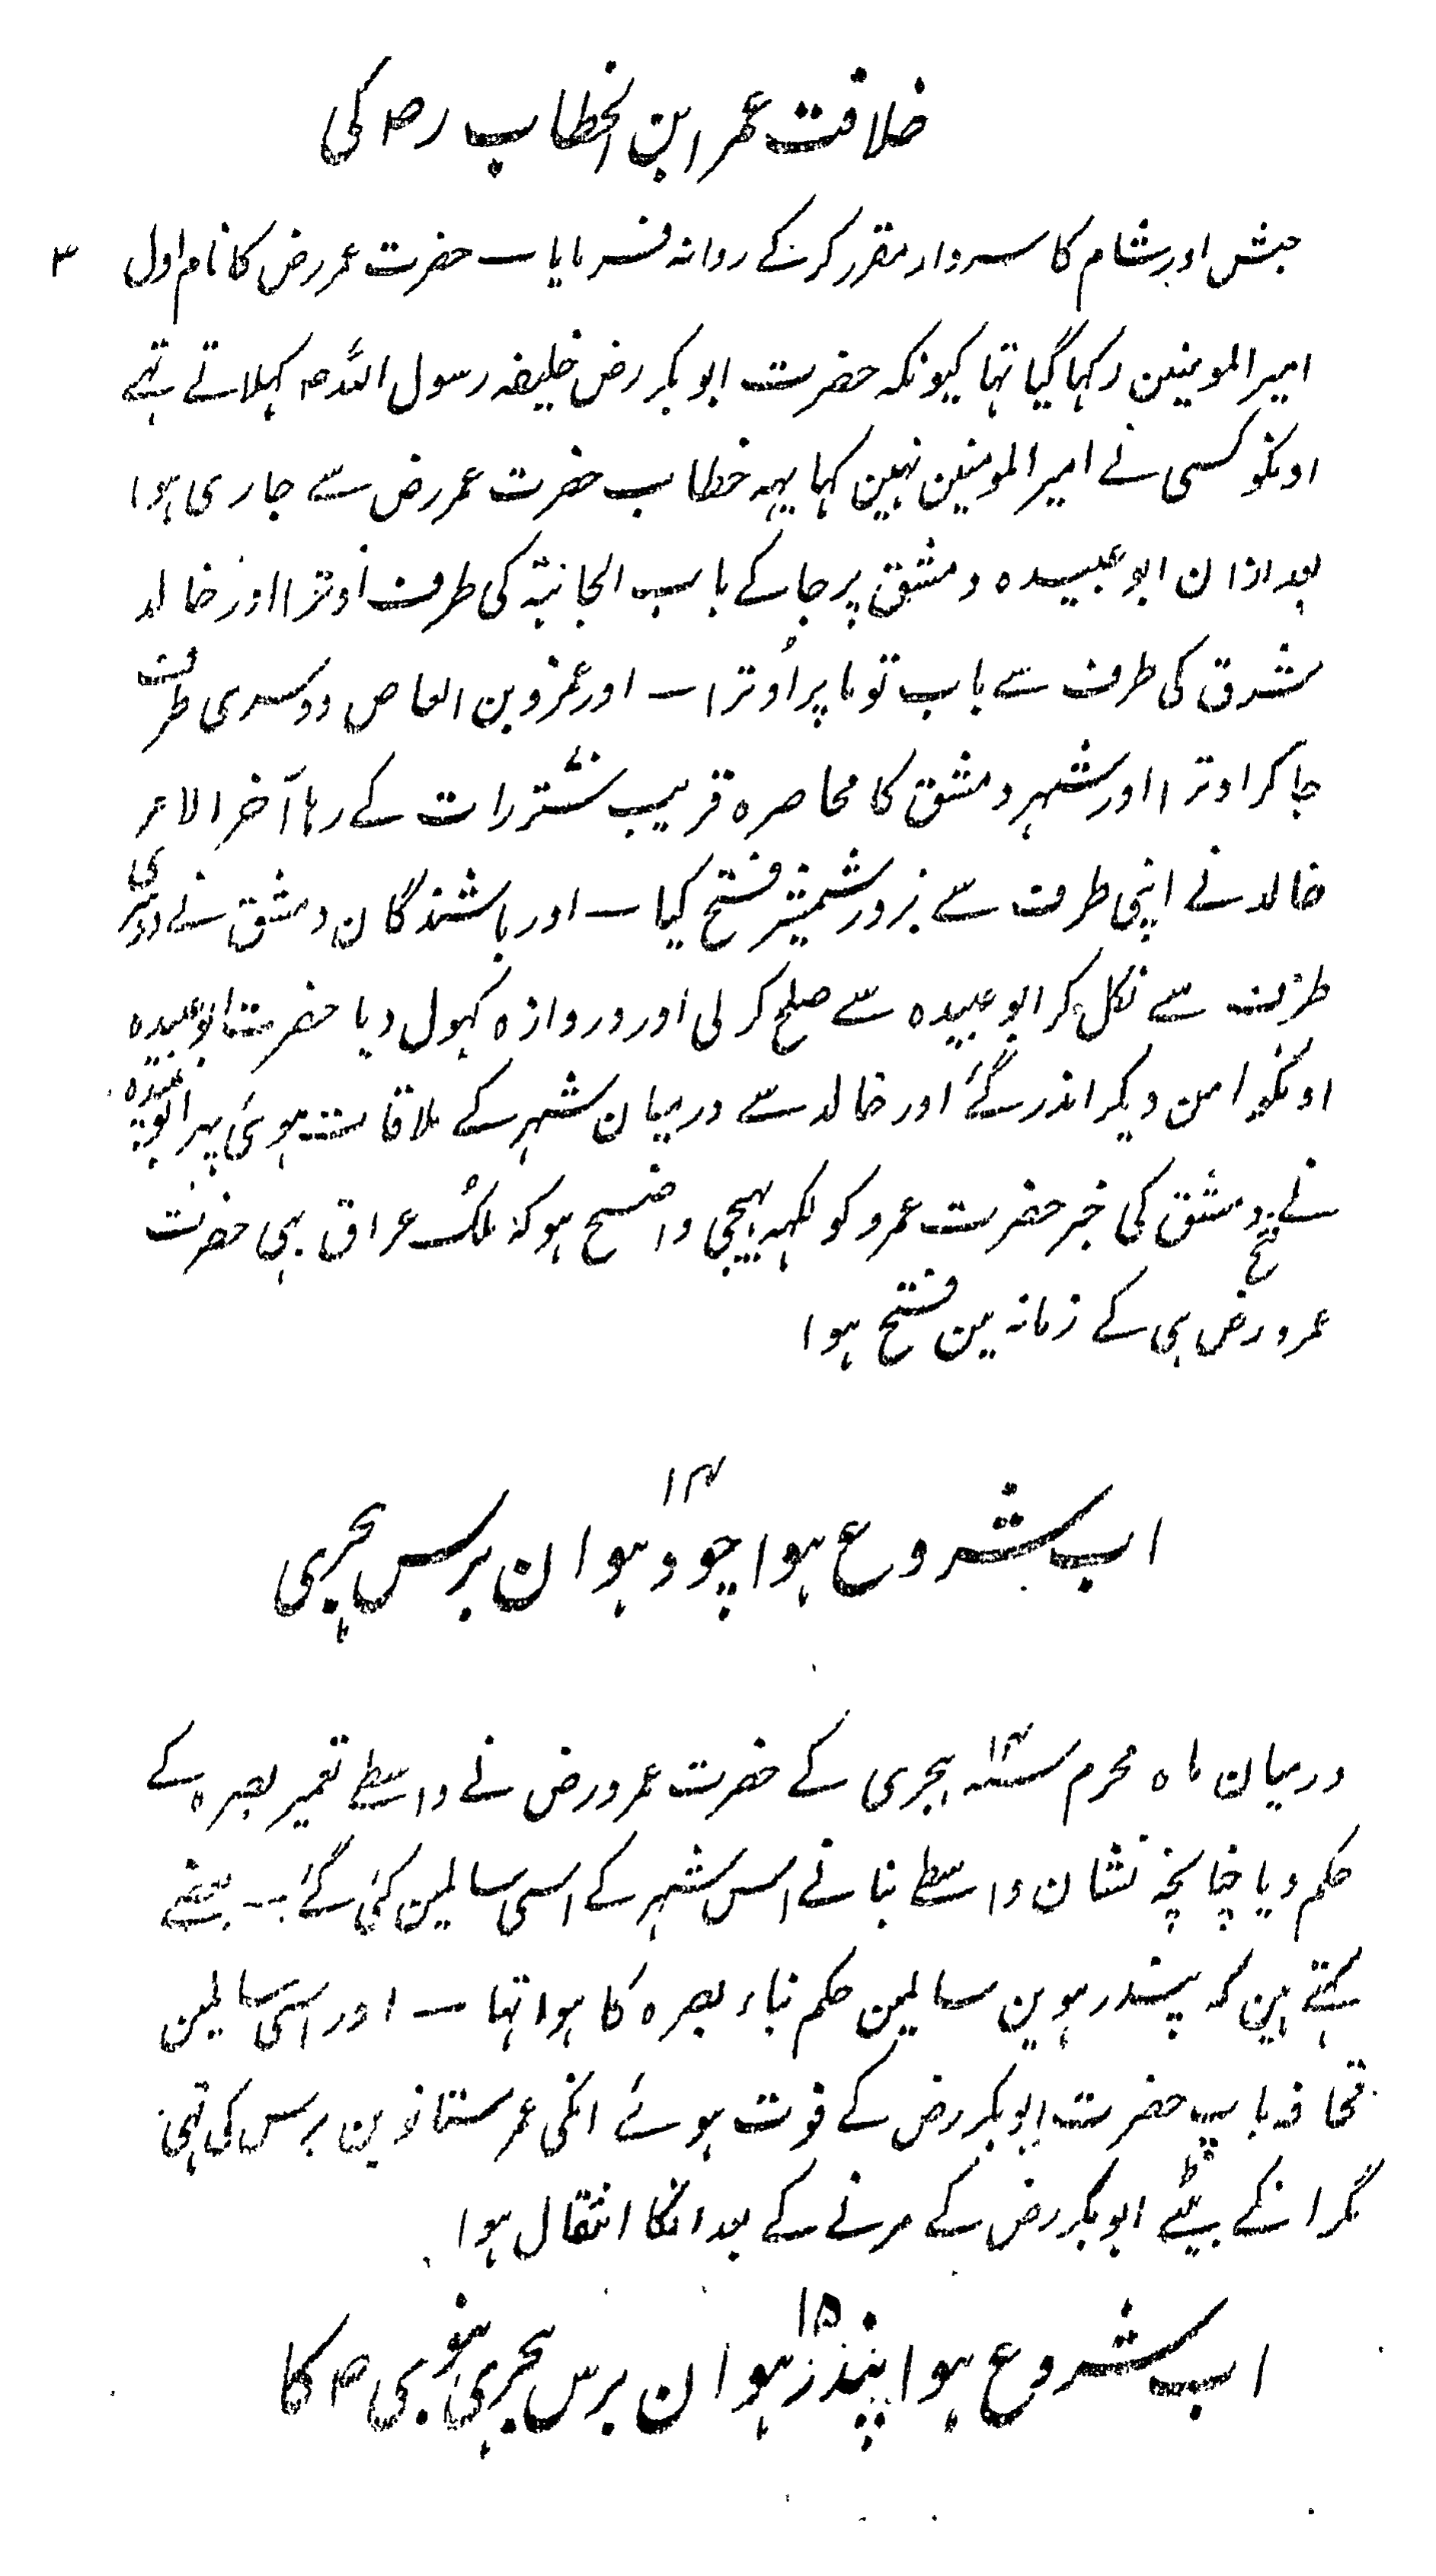 خلافت عمر ابن الخطاب رض کی
جیش اور شام کا سردار مقرر کرکے روانہ فرمایا ـــ حضرت عمر رض کا نام اول ۳
امیر المومنین رکہا گیا تہا کیونکہ حضرت ابو بکر رض خلیفہ رسول اللہ ص کہلاتے تہے
اونکو کسی نے امیر المومنین نہین کہا یہہ خطاب حضرت عمر رض سے جاری ہوا
بعد ازان ابو عبیدہ دمشق پر جا کے باب الجابیۃ کی طرف اوترا اور خالد
شرق کی طرف سے باب توما پر اُوترا ـــ اور عمرو بن العاص دوسری طرف
جا کر اوترا اور شہر دمشق کا محاصرہ قریب ستّر رات کے رہا آخر الامر
خالد نے اپنی طرف سے بزور شمشیر فتح کیا ـــ اور باشندگان دمشق نے دوسری
طرف سے نکل کر ابو عبیدہ سے صلح کر لی اور دروازہ کہول دیا حضرت ابو عبیدہ
اونکو امن دیکر اندر گئے اور خالد سے درمیان شہر کے ملاقات ہوئی پہر ابو عبیدہ
نے فتح دمشق کی خبر حضرت عمرو کو لکہہ بہیجی واضح ہو کہ ملک عراق بہی حضرت
عمرو رض ہی کے زمانہ مین فتح ہوا
۱۴
اب شروع ہوا چودہوان برس ہجری
درمیان ماہ محرم سنہ ۱۴ ہجری کے حضرت عمرو رض نے واسطے تعمیر بصرہ کے
حکم دیا چنانچہ نشان واسطے بنانے اس شہر کے اسی سالمین کئی گئے ـــ بعضے
کہتے ہین کہ پندرہوین سالمین حکم بناء بصرہ کا ہوا تہا ـــ اور اسی سالمین
قحافہ باپ حضرت ابو بکر رض کے فوت ہوئے انکی عمر ستانوین برس کی تہی
مگر انکے بیٹے ابو بکر رض کے مرنے کے بعد انکا انتقال ہوا
۱۵
اب شروع ہوا پندرہوان برس ہجری نبوی ص کا